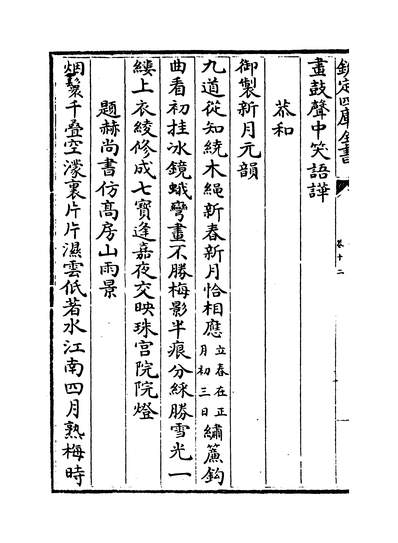 欽定四庫全書
卷十二
畫鼓聲中笑語譁
恭和
御製新月元韻
九道從知繞木繩新春新月恰相應立春在正月初三日繡簾鈎
曲看初挂冰鏡蛾彎畫不勝梅影半痕分綵勝雪光一
縷上衣綾修成七寶逢嘉夜交映珠宫院院燈
題赫尚書仿髙房山雨景
烟鬟千疊空濛裏片片濕雲低著水江南四月熟梅時